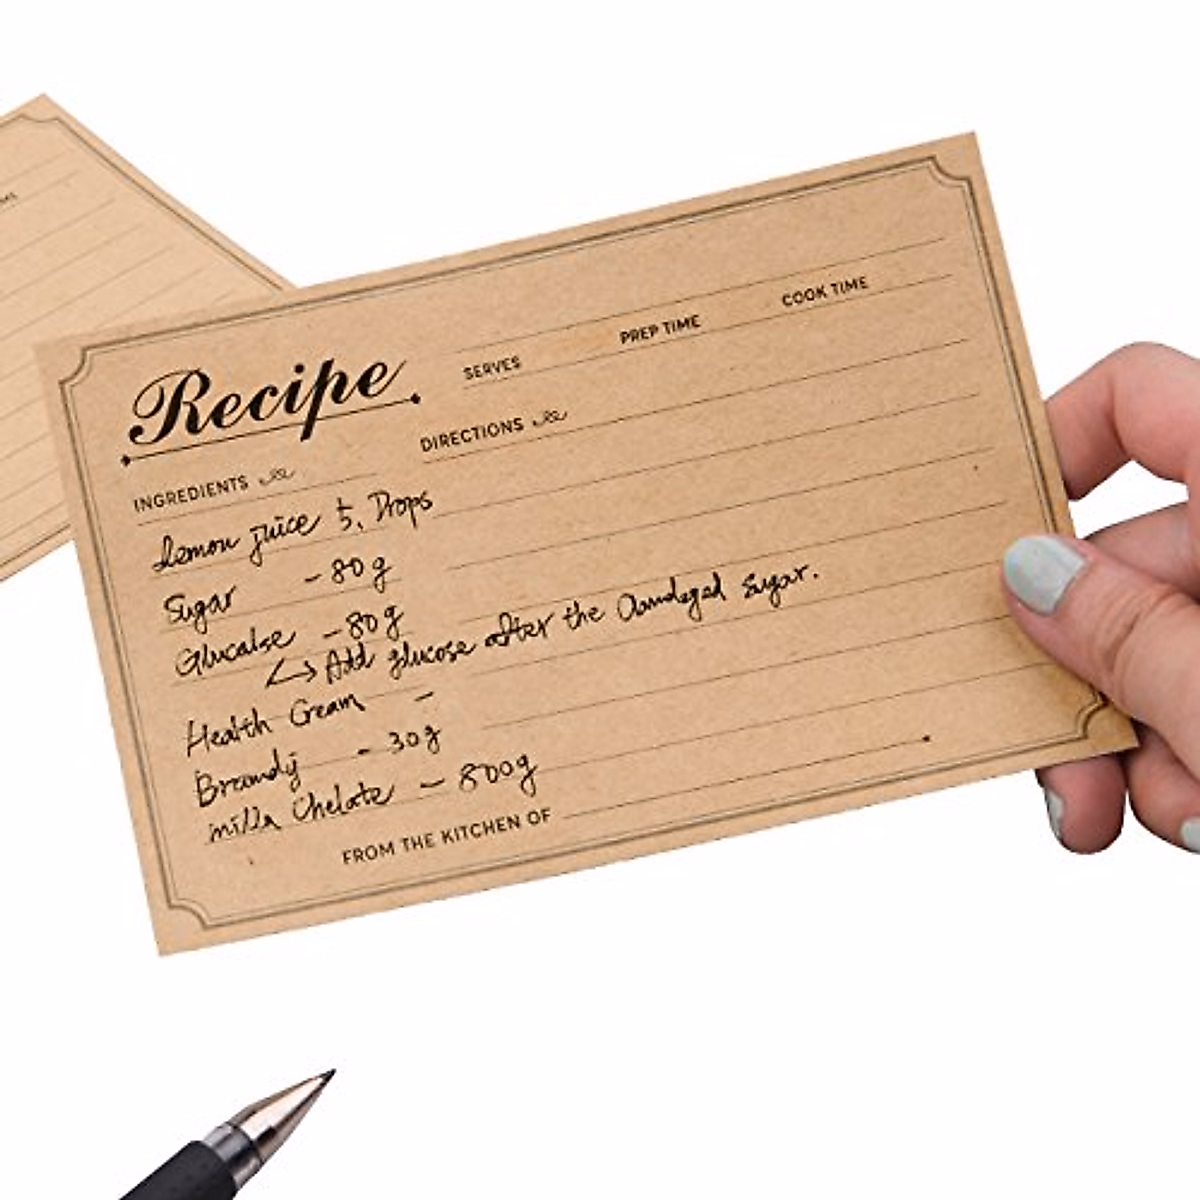 Recipe
SERVES PREP TIME COOK TIME
INGREDIENTS
DIRECTIONS
Lemon juice 5, Drops
Sugar - 80g
Glucalse - 80g
↳ Add glucose after the sugar.
Health Cream -
Brandy - 30g
milla Chelate - 800g
FROM THE KITCHEN OF